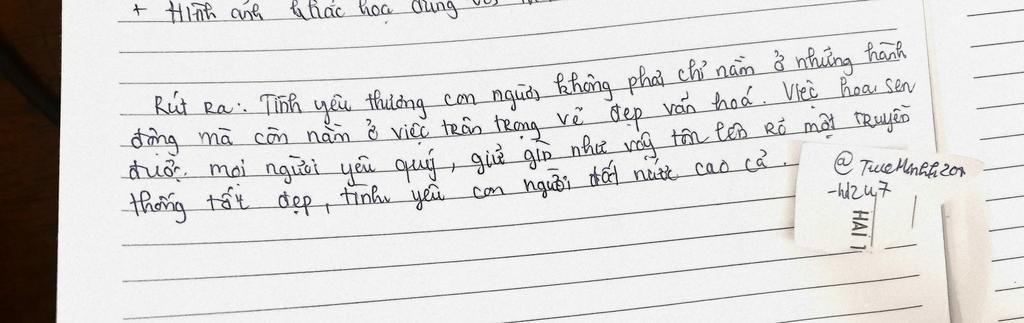 + Hình ảnh khắc hoạ dung
Rút Ra: Tình yêu thương con người không phải chỉ nằm ở những hành
động mà còn nằm ở việc trân trọng vẻ đẹp văn hoá. Việc hoa sen
được mọi người yêu quý, giữ gìn như vậy tôn lên rõ một truyền
thống tốt đẹp, tình yêu con người đất nước cao cả.
@TucMinhh201
-hd247
HAI